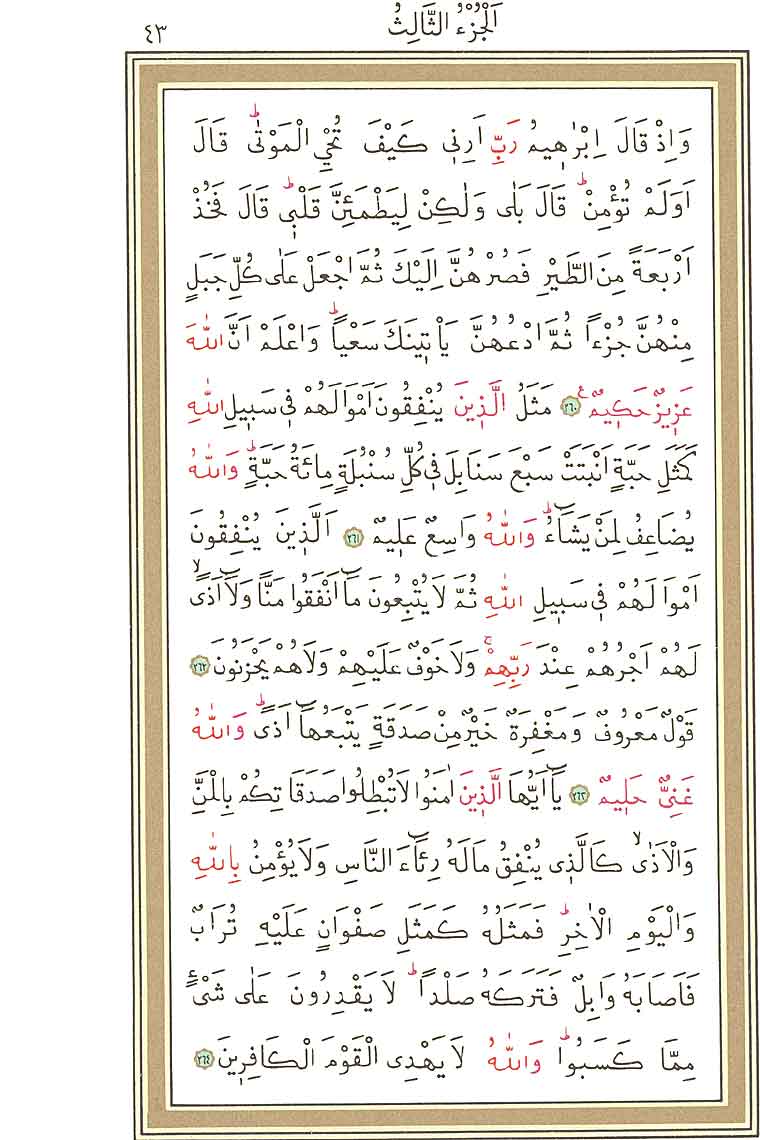 اَلْجُزْءُ الثَّالِثُ ٤٣
وَاِذْ قَالَ اِبْرٰهٖيمُ رَبِّ اَرِنٖى كَيْفَ تُحْيِ الْمَوْتٰىؕ قَالَ
اَوَلَمْ تُؤْمِنْؕ قَالَ بَلٰى وَلٰكِنْ لِيَطْمَئِنَّ قَلْبٖىؕ قَالَ فَخُذْ
اَرْبَعَةً مِنَ الطَّيْرِ فَصُرْهُنَّ اِلَيْكَ ثُمَّ اجْعَلْ عَلٰى كُلِّ جَبَلٍ
مِنْهُنَّ جُزْءاً ثُمَّ ادْعُهُنَّ يَاْتٖينَكَ سَعْياًؕ وَاعْلَمْ اَنَّ اللّٰهَ
عَزٖيزٌ حَكٖيمٌࣖ ٢٦٠ مَثَلُ الَّذٖينَ يُنْفِقُونَ اَمْوَالَهُمْ فٖى سَبٖيلِ اللّٰهِ
كَمَثَلِ حَبَّةٍ اَنْبَتَتْ سَبْعَ سَنَابِلَ فٖى كُلِّ سُنْبُلَةٍ مِائَةُ حَبَّةٍؕ وَاللّٰهُ
يُضَاعِفُ لِمَنْ يَشَٓاءُؕ وَاللّٰهُ وَاسِعٌ عَلٖيمٌ ٢٦١ اَلَّذٖينَ يُنْفِقُونَ
اَمْوَالَهُمْ فٖى سَبٖيلِ اللّٰهِ ثُمَّ لَا يُتْبِعُونَ مَٓا اَنْفَقُوا مَنًّا وَلَٓا اَذًىۙ
لَهُمْ اَجْرُهُمْ عِنْدَ رَبِّهِمْۚ وَلَا خَوْفٌ عَلَيْهِمْ وَلَا هُمْ يَحْزَنُونَ ٢٦٢
قَوْلٌ مَعْرُوفٌ وَمَغْفِرَةٌ خَيْرٌ مِنْ صَدَقَةٍ يَتْبَعُهَٓا اَذًىؕ وَاللّٰهُ
غَنِىٌّ حَلٖيمٌ ٢٦٣ يَٓا اَيُّهَا الَّذٖينَ اٰمَنُوا لَا تُبْطِلُوا صَدَقَاتِكُمْ بِالْمَنِّ
وَالْاَذٰىۙ كَالَّذٖى يُنْفِقُ مَالَهُ رِئَٓاءَ النَّاسِ وَلَا يُؤْمِنُ بِاللّٰهِ
وَالْيَوْمِ الْاٰخِرِؕ فَمَثَلُهُ كَمَثَلِ صَفْوَانٍ عَلَيْهِ تُرَابٌ
فَاَصَابَهُ وَابِلٌ فَتَرَكَهُ صَلْداًؕ لَا يَقْدِرُونَ عَلٰى شَىْءٍ
مِمَّا كَسَبُواؕ وَاللّٰهُ لَا يَهْدِى الْقَوْمَ الْكَافِرٖينَ ٢٦٤